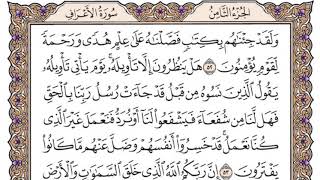 الجزء الثامن
سورة الأعراف
وَلَقَدْ جِئْنَٰهُم بِكِتَٰبٍ فَصَّلْنَٰهُ عَلَىٰ عِلْمٍ هُدًى وَرَحْمَةً
لِّقَوْمٍ يُؤْمِنُونَ ٥٢ هَلْ يَنظُرُونَ إِلَّا تَأْوِيلَهُۥ يَوْمَ يَأْتِى تَأْوِيلُهُۥ
يَقُولُ ٱلَّذِينَ نَسُوهُ مِن قَبْلُ قَدْ جَآءَتْ رُسُلُ رَبِّنَا بِٱلْحَقِّ
فَهَل لَّنَا مِن شُفَعَآءَ فَيَشْفَعُوا۟ لَنَآ أَوْ نُرَدُّ فَنَعْمَلَ غَيْرَ ٱلَّذِى
كُنَّا نَعْمَلُ قَدْ خَسِرُوٓا۟ أَنفُسَهُمْ وَضَلَّ عَنْهُم مَّا كَانُوا۟
يَفْتَرُونَ ٥٣ إِنَّ رَبَّكُمُ ٱللَّهُ ٱلَّذِى خَلَقَ ٱلسَّمَٰوَٰتِ وَٱلْأَرْضَ